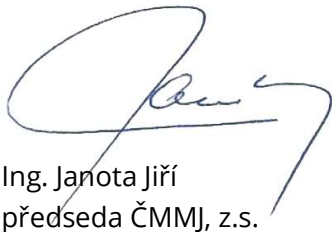 Ing. Janota Jiří
předseda ČMMJ, z.s.